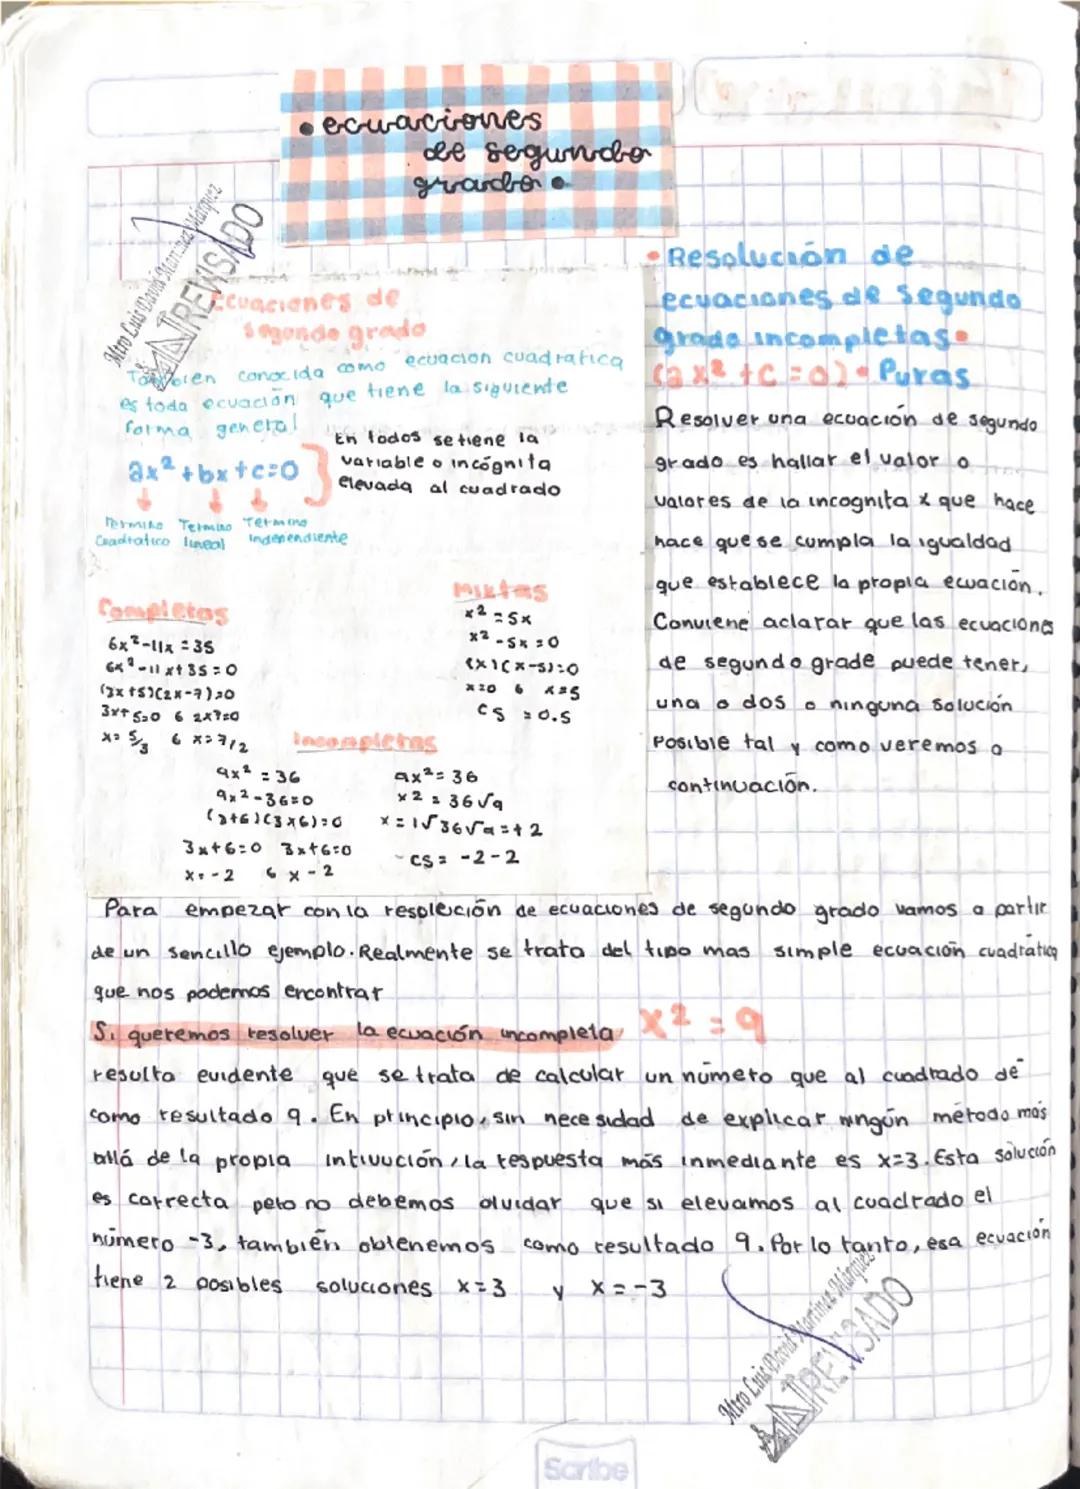 • ecuaciones
de segundo
grado •
Mtro Luis David Martinez Márquez
REVISADO
Ecuaciones de
segundo grado
Tambien conocida como ecuacion cuadratica
es toda ecuación que tiene la siguiente
forma general
ax² + bx + c = 0
Termino Termino Termino
Cuadratico lineal Independiente
En todos se tiene la
variable o incógnita
elevada al cuadrado
Completas
6x² - 11x = 35
6x² - 11x + 35 = 0
(3x + 5)(2x - 7) = 0
3x + 5 = 0 ó 2x 7 = 0
x = 5/3 ó x = 7/2
Mixtas
x² = 5x
x² - 5x = 0
(x)(x - 5) = 0
x = 0 ó x = 5
CS = 0.5
Incompletas
9x² = 36
9x² - 36 = 0
(3 + 6)(3x6) = 0
3x + 6 = 0 3x + 6 = 0
x = -2 ó x - 2
9x² = 36
x² = 36√9
x = 1√36√9 = + 2
CS = -2 - 2
• Resolución de
ecuaciones de segundo
grado incompletas •
(ax² + c = 0) • Puras
Resolver una ecuación de segundo
grado es hallar el valor o
valores de la incognita x que hace
hace que se cumpla la igualdad
que establece la propia ecuación.
Conviene aclarar que las ecuaciones
de segundo grade puede tener,
una o dos o ninguna solución
posible tal y como veremos a
continuación.
Para empezar con la resolución de ecuaciones de segundo grado vamos a partir
de un sencillo ejemplo. Realmente se trata del tipo mas simple ecuación cuadrática
que nos podemos encontrar
Si queremos resolver la ecuación incompleta x² = 9
resulta evidente que se trata de calcular un número que al cuadrado dé
como resultado 9. En principio, sin necesidad de explicar ningún método más
allá de la propia intivución, la respuesta más inmediante es x=3. Esta solución
es correcta pero no debemos olvidar que si elevamos al cuadrado el
número -3, también obtenemos como resultado 9. Por lo tanto, esa ecuación
tiene 2 posibles soluciones x = 3 y x = -3
Mtro Luis David Martinez Márquez
REVISADO
Scribe